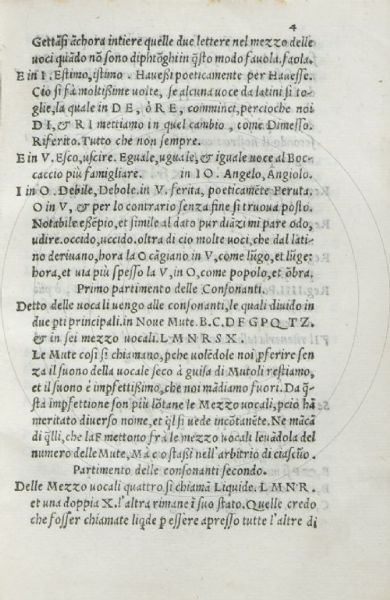 4
Gettãsi ãchora intiere quelle due lettere nel mezzo delle
uoci quãdo nõ sono diphtõghi in q̃sto modo fauola.faola.
E in I. Estimo, istimo. Hauessi poeticamente per Hauesse.
Cio si fà moltissime uolte, se alcuna uoce da latini si to-
glie, la quale in DE, ò RE, comminci, percioche noi
DI, & RI mettiamo in quel cambio, come Dimesso.
Riferito. Tutto che non sempre.
E in V. Esco, uscire. Eguale, uguale, & iguale uoce al Boc-
caccio piu famigliare. in IO. Angelo, Angiolo.
I in O. Debile, Debole. in V. ferita, poeticamẽte Feruta.
O in V, & per lo contrario senza fine si truoua posto.
Notabile eßẽpio, et simile al dato pur diãzi mi pare odo,
udire. occido, uccido. oltra di cio molte uoci, che dal lati-
no deriuano, hora la O cãgiano in V, come lũgo, et lũge;
hora, et uia più spesso la V, in O, come popolo, et õbra.
Primo partimento delle Consonanti.
Detto delle uocali uengo alle consonanti, le quali diuido in
due pti principali. in Noue Mute. B. C. D F G P Q T Z.
& in sei mezzo uocali. L M N R S X.
Le Mute cosi si chiamano, pche uolẽdole noi, pferire sen
za il suono della uocale seco à guisa di Mutoli restiamo,
et il suono è impfettißimo, che noi mãdiamo fuori. Da q̃-
sta impfettione son più lõtane le Mezzo uocali, pciò hã
meritato diuerso nome, et q̃l si uede incõtanẽte. Ne mãca
di q̃lli, che la F mettono frà le mezzo uocali leuãdola del
numero delle Mute, Ma ciò staßi nell'arbitrio di ciascũo.
Partimento delle consonanti secondo.
Delle Mezzo uocali quattro si chiamã Liquide. L M N R.
et una doppia X. l'altra rimane ĩ suo stato. Quelle credo
che fosser chiamate liq̃de p essere apresso tutte l'altre di